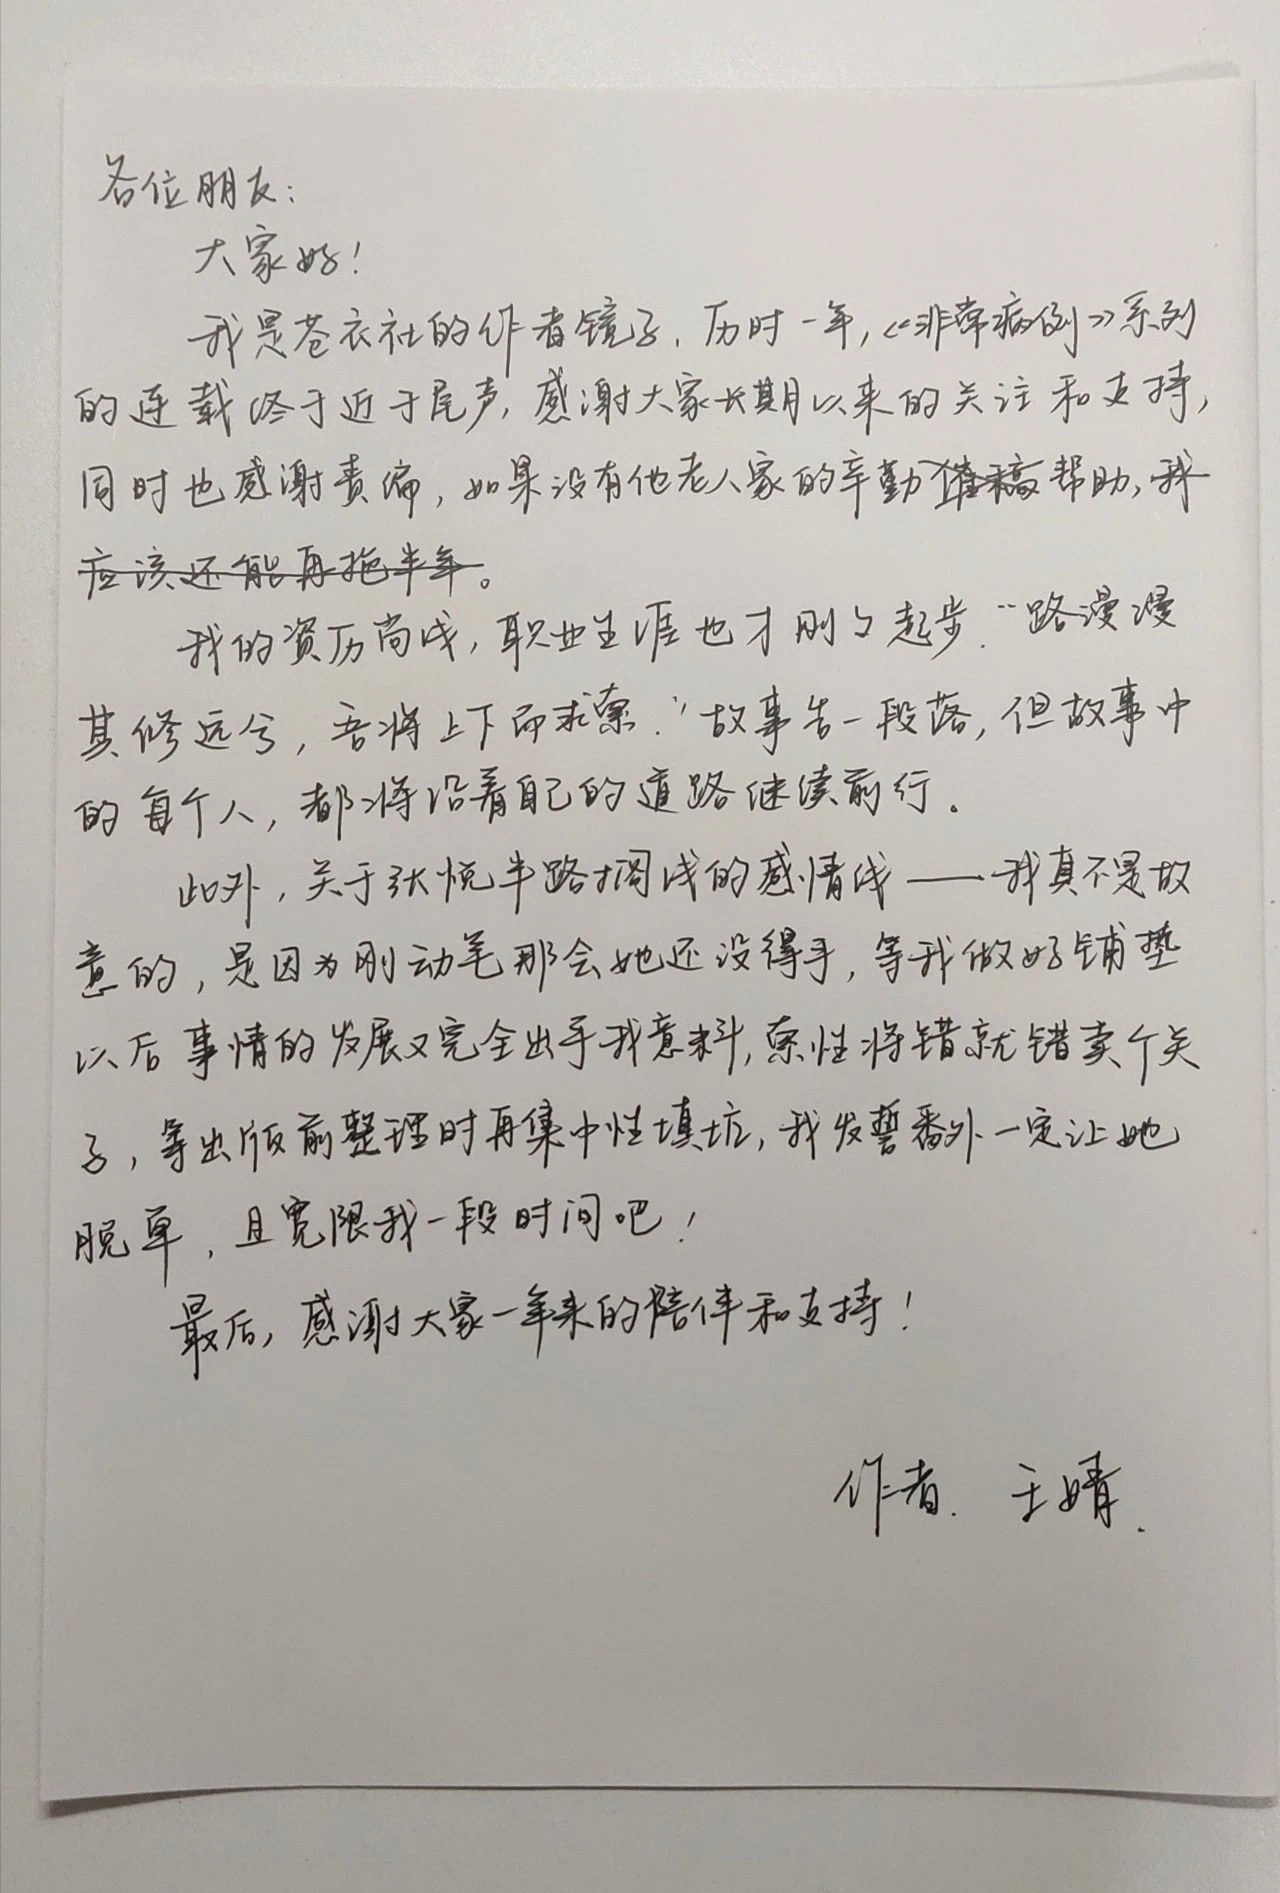 各位朋友：
大家好！
我是苍衣社的作者镜子．历时一年，《非常病例》系列
的连载终于近于尾声，感谢大家长期以来的关注和支持，
同时也感谢责编，如果没有他老人家的辛勤催稿帮助，我
应该还能再拖半年。
我的资历尚浅，职业生涯也才刚刚起步．“路漫漫
其修远兮，吾将上下而求索．”故事告一段落，但故事中
的每个人，都将沿着自己的道路继续前行。
此外，关于张悦半路搁浅的感情线——我真不是故
意的，是因为刚动笔那会她还没得手，等我做好铺垫
以后事情的发展又完全出乎我意料，索性将错就错卖个关
子，等出版前整理时再集中性填坑，我发誓番外一定让她
脱单，且宽限我一段时间吧！
最后，感谢大家一年来的陪伴和支持！
作者．王婧．